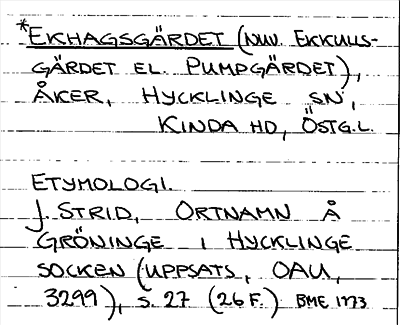 *EKHAGSGÄRDET (NUV. EKKULLS-
GÄRDET EL. PUMPGÄRDET),
ÅKER, HYCKLINGE SN,
KINDA HD, ÖSTG.L.
ETYMOLOGI.
J. STRID, ORTNAMN Å
GRÖNINGE I HYCKLINGE
SOCKEN (UPPSATS, OAU,
3299), S. 27 (26 F.) BME 1773